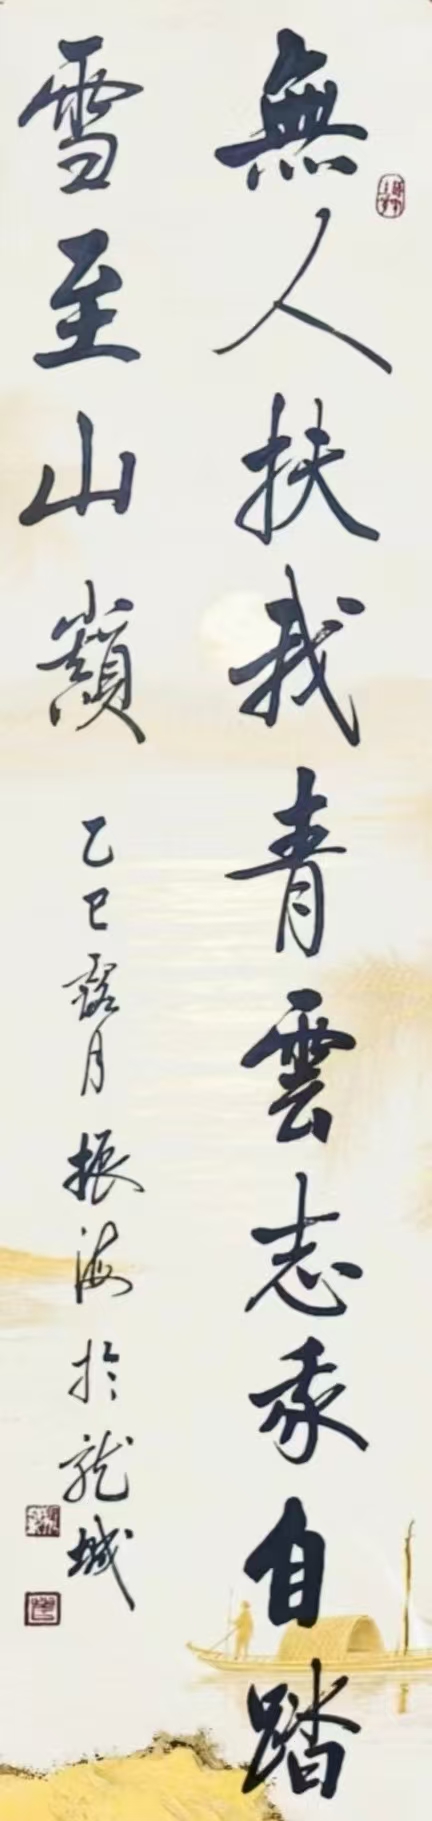 無人扶我青雲志我自踏
雪至山巔
乙巳露月振海於龍城